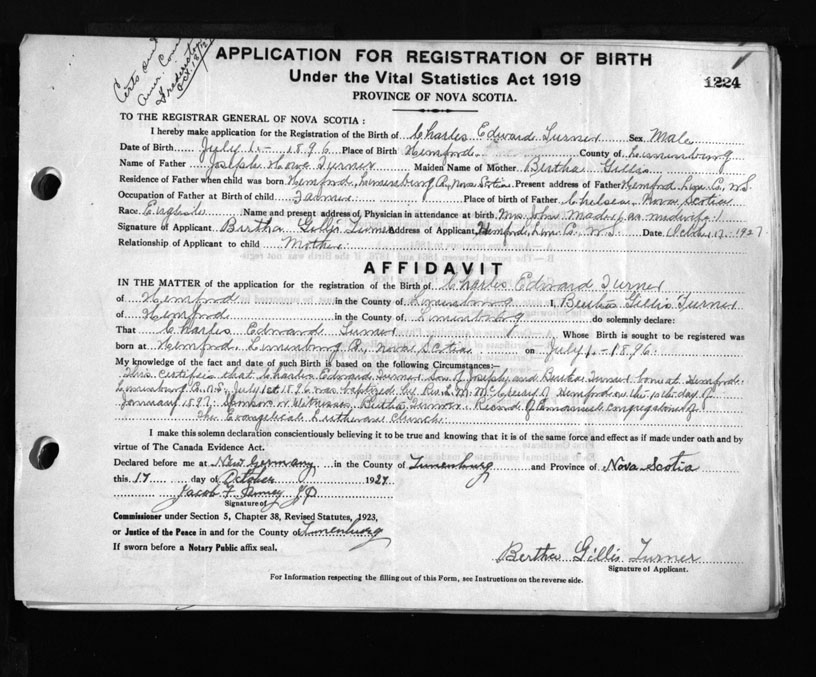 Certs sent
Fredericton
Oct 18/27
1
APPLICATION FOR REGISTRATION OF BIRTH
Under the Vital Statistics Act 1919
1224
PROVINCE OF NOVA SCOTIA.
TO THE REGISTRAR GENERAL OF NOVA SCOTIA :
I hereby make application for the Registration of the Birth of Charles Edward Turner Sex Male
Date of Birth July 1.- 1896 Place of Birth Hemford. County of Lunenburg
Name of Father Joseph Howe Turner Maiden Name of Mother Bertha Gillis
Residence of Father when child was born Hemford, Lunenburg Co, Nova Scotia. Present address of Father Hemford Lun Co, NS.
Occupation of Father at Birth of child Farmer Place of birth of Father Chelsea, Nova Scotia
Race. English Name and present address of Physician in attendance at birth Mrs John (as midwife)
Signature of Applicant Bertha Gillis Turner Address of Applicant, Hemford, Lun Co. NS. Date Octbr 17.- 1927
Relationship of Applicant to child Mother
AFFIDAVIT
IN THE MATTER of the application for the registration of the Birth of Charles Edward Turner
of Hemford in the County of Lunenburg I, Bertha Gillis Turner
of Hemford in the County of Lunenburg do solemnly declare:
That Charles Edward Turner Whose Birth is sought to be registered was
born at Hemford Lunenburg Co, Nova Scotia on July 1.- 1896.
My knowledge of the fact and date of such Birth is based on the following Circumstances:—
This certifies that Charles Edward Turner Son of Joseph and Bertha Turner born at Hemford
Lunenburg Co. N.S, July 1st 1896 was baptized by Rev. of Hemford on the 10th day of
January 1897. Sponsors or Witnesses, Bertha Turner. Record of Emmanuel Congregation of
the Evangelical Lutheran Church.
I make this solemn declaration conscientiously believing it to be true and knowing that it is of the same force and effect as if made under oath and by
virtue of The Canada Evidence Act.
Declared before me at New Germany in the County of Lunenburg and Province of Nova Scotia
this 17 day of October 1927
Jacob F JP
Signature of
Commissioner under Section 5, Chapter 38, Revised Statutes, 1923,
or Justice of the Peace in and for the County of Lunenburg
If sworn before a Notary Public affix seal.
Bertha Gillis Turner
Signature of Applicant.
For Information respecting the filling out of this Form, see Instructions on the reverse side.